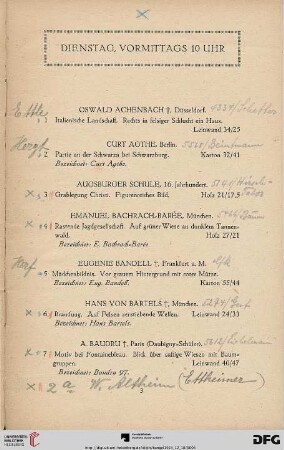 DIENSTAG, VORMITTAGS 10 UHR
OSWALD ACHENBACH †, Düsseldorf.
1 Italienische Landschaft. Rechts in felsiger Schlucht ein Haus.
Leinwand 34/25
CURT AGTHE, Berlin.
2 Partie an der Schwarza bei Schwarzburg. Karton 32/41
Bezeichnet: Curt Agthe.
AUGSBURGER SCHULE, 16. Jahrhundert.
3 Grablegung Christi. Figurenreiches Bild. Holz 21/17,5
EMANUEL BACHRACH-BARÉE, München.
4 Rastende Jagdgesellschaft. Auf grüner Wiese an dunklem Tannen-
wald. Holz 27/21
Bezeichnet: E. Bachrach-Barée
EUGENIE BANDELL †, Frankfurt a. M.
5 Märchenbildnis. Vor grauem Hintergrund mit roter Mütze.
Bezeichnet: Eug. Bandell. Karton 55/44
HANS VON BARTELS †, München.
6 Brandung. Auf Felsen anstiebende Wellen. Leinwand 24/33
Bezeichnet: Hans Bartels.
A. BAUDRU †, Paris (Daubigny-Schüler),
7 Motiv bei Fontainebleau. Blick über saftige Wiesen mit Baum-
gruppen. Leinwand 40/47
Bezeichnet: Baudru 97.
2a W. Altheim (Ettheimer)
3